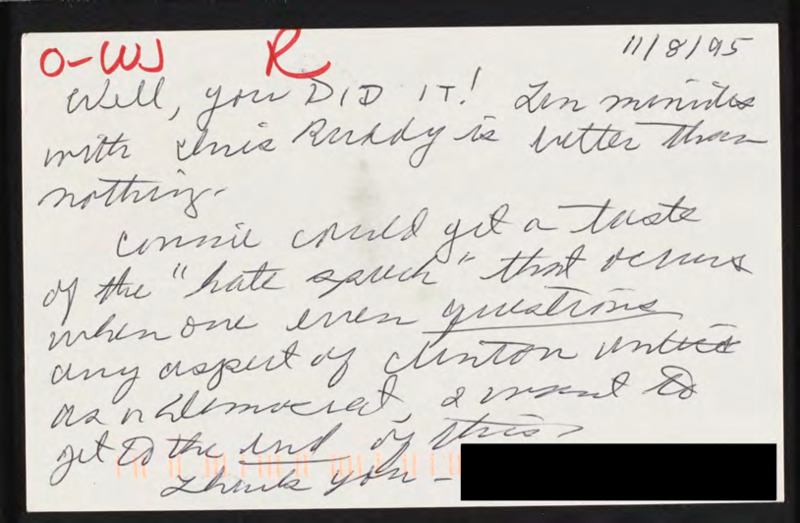 O-W R 11/8/95
Well, you DID IT! Ten minutes
with Chris Ruddy is better than
nothing.
Connie could get a taste
of the "hate speech" that occurs
when one even questions
any aspect of Clinton
as a Democrat, I want to
get to the end of this,
Thank you -